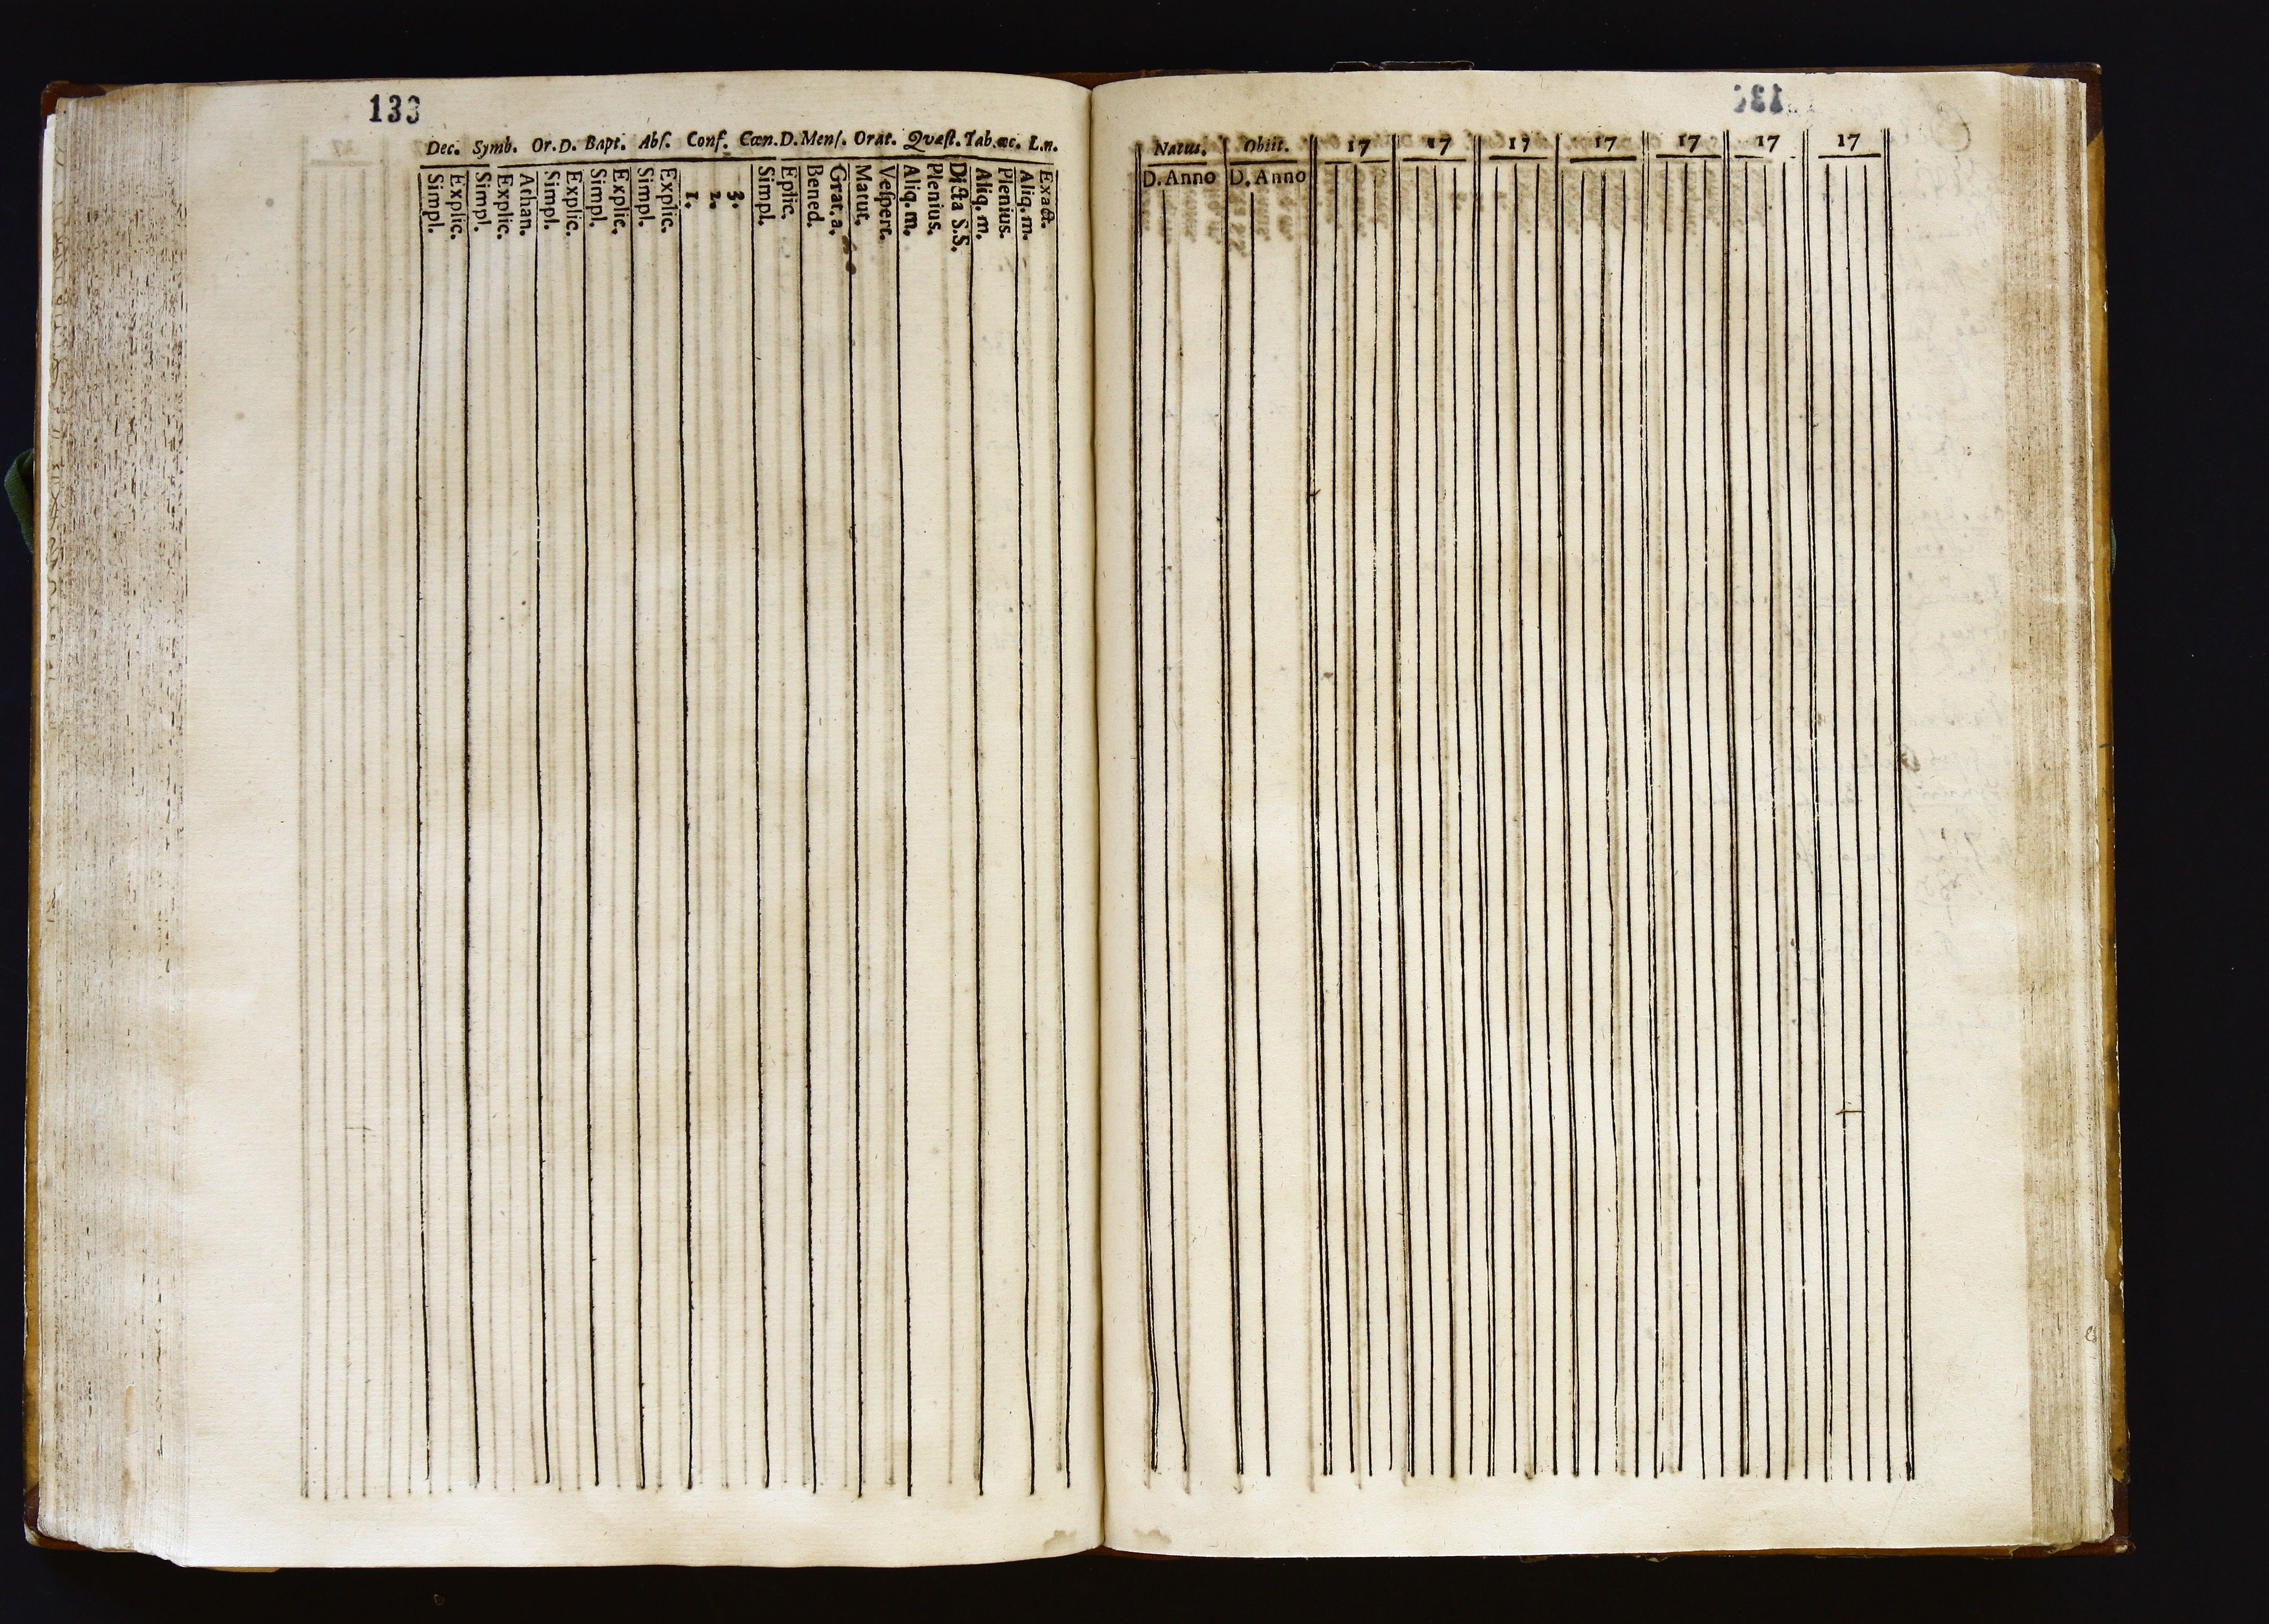 133
Dec. Symb. Or. D. Bapt. Abſ. Conf. Cœn. D. Menſ. Orat. Qvæſt. Tab. œc. L. n.
Simpl.
Explic.
Simpl.
Explic.
Athan.
Simpl.
Explic.
Simpl.
Explic.
Simpl.
Explic.
1.
2.
3.
Simpl.
Eplic.
Bened.
Grat. a.
Matut.
Veſpert.
Aliq. m.
Plenius.
Dicta S.S.
Aliq. m.
Plenius.
Aliq. m.
Exact.
Natus. Obiit. 17 17 17 17 17 17 17
D. Anno D. Anno